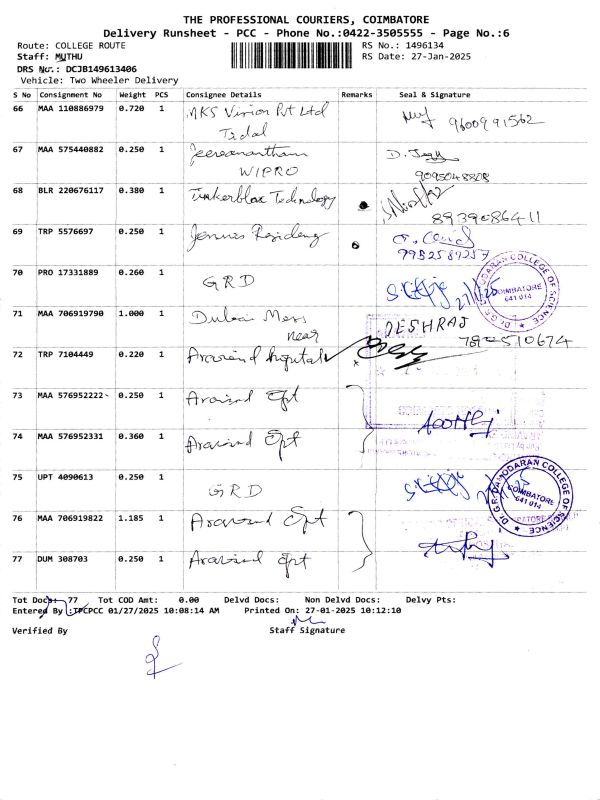 THE PROFESSIONAL COURIERS, COIMBATORE
Delivery Runsheet - PCC - Phone No.:0422-3505555 - Page No.:6
Route: COLLEGE ROUTE
RS No.: 1496134
Staff: MUTHU
RS Date: 27-Jan-2025
DRS No.: DCJB149613406
Vehicle: Two Wheeler Delivery
S No Consignment No Weight PCS Consignee Details Remarks Seal & Signature
66 MAA 110886979 0.720 1 MKS Vision Pvt Ltd
Tidal
9600991562
67 MAA 575440882 0.250 1 Jeevanantham D.
WIPRO
9095048808
68 BLR 220676117 0.380 1 Tinkerblox Technology
8939086411
69 TRP 5576697 0.250 1 Jennis Residency
7982589257
70 PRO 17331889 0.260 1 GRD
COIMBATORE
641 014
71 MAA 706919790 1.000 1 Dubai Mess DESHRAJ
near
72 TRP 7104449 0.220 1 Aravind hospital
73 MAA 576952222 0.250 1 Aravind Opt
74 MAA 576952331 0.360 1 Aravind Opt
75 UPT 4090613 0.250 1 GRD
Dr.G.R.DAMODARAN COLLEGE OF SCIENCE
COIMBATORE
641 014
76 MAA 706919822 1.185 1 Aravind Opt
77 DUM 308703 0.250 1 Aravind Opt
Tot Docs: 77 Tot COD Amt: 0.00 Delvd Docs: Non Delvd Docs: Delvy Pts:
Entered By :TPCPCC 01/27/2025 10:08:14 AM Printed On: 27-01-2025 10:12:10
Verified By Staff Signature